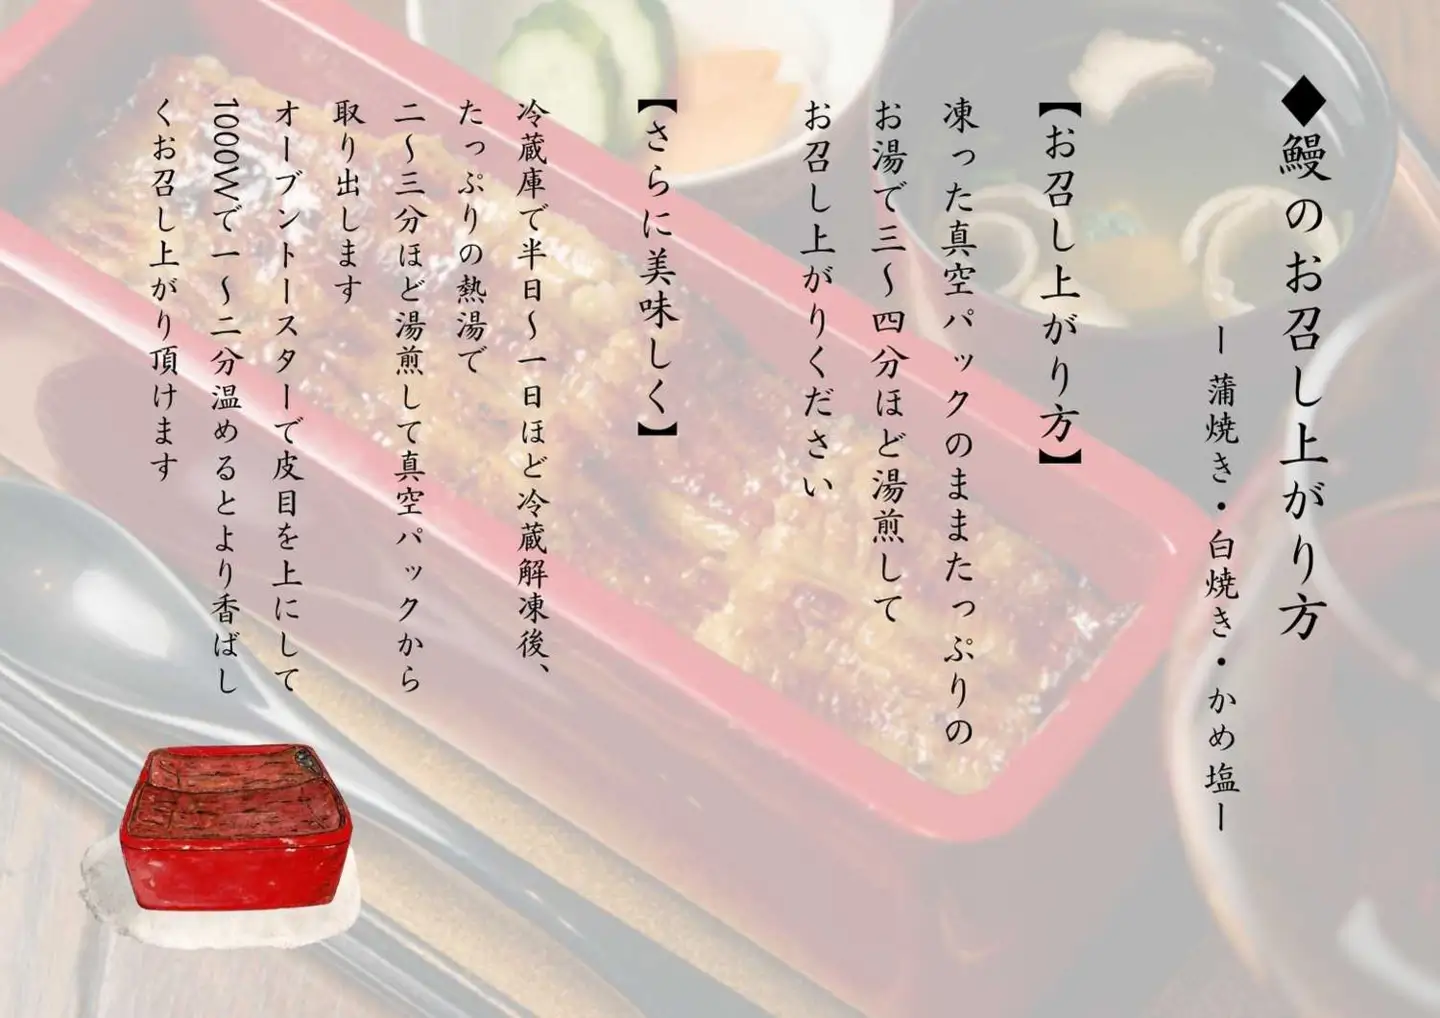 ◆鰻のお召し上がり方
ー蒲焼き・白焼き・かめ塩ー
【お召し上がり方】
凍った真空パックのままたっぷりの
お湯で三〜四分ほど湯煎して
お召し上がりください
【さらに美味しく】
冷蔵庫で半日〜一日ほど冷蔵解凍後、
たっぷりの熱湯で
二〜三分ほど湯煎して真空パックから
取り出します
オーブントースターで皮目を上にして
1000Wで一〜二分温めるとより香ばし
くお召し上がり頂けます